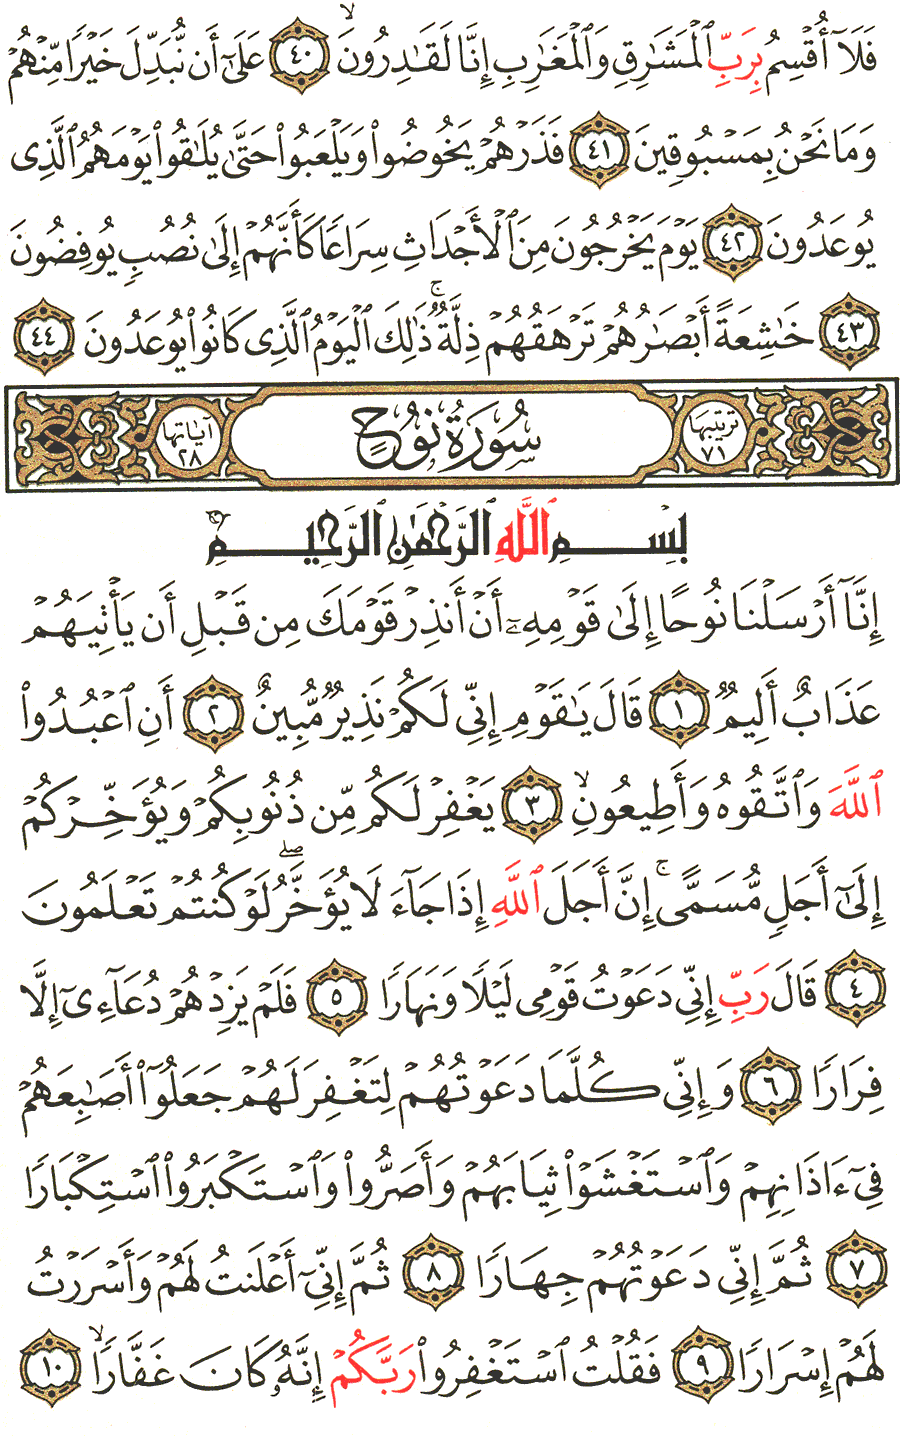 فَلَآ أُقْسِمُ بِرَبِّ ٱلْمَشَٰرِقِ وَٱلْمَغَٰرِبِ إِنَّا لَقَٰدِرُونَ ۙ ٤٠ عَلَىٰٓ أَن نُّبَدِّلَ خَيْرًا مِّنْهُمْ
وَمَا نَحْنُ بِمَسْبُوقِينَ ٤١ فَذَرْهُمْ يَخُوضُوا۟ وَيَلْعَبُوا۟ حَتَّىٰ يُلَٰقُوا۟ يَوْمَهُمُ ٱلَّذِى
يُوعَدُونَ ٤٢ يَوْمَ يَخْرُجُونَ مِنَ ٱلْأَجْدَاثِ سِرَاعًا كَأَنَّهُمْ إِلَىٰ نُصُبٍ يُوفِضُونَ
٤٣ خَٰشِعَةً أَبْصَٰرُهُمْ تَرْهَقُهُمْ ذِلَّةٌ ۚ ذَٰلِكَ ٱلْيَوْمُ ٱلَّذِى كَانُوا۟ يُوعَدُونَ ٤٤
ترتيبها ٧١ سُورَةُ نُوحٍ آياتها ٢٨
بِسْمِ ٱللَّهِ ٱلرَّحْمَٰنِ ٱلرَّحِيمِ
إِنَّآ أَرْسَلْنَا نُوحًا إِلَىٰ قَوْمِهِۦٓ أَنْ أَنذِرْ قَوْمَكَ مِن قَبْلِ أَن يَأْتِيَهُمْ
عَذَابٌ أَلِيمٌ ١ قَالَ يَٰقَوْمِ إِنِّى لَكُمْ نَذِيرٌ مُّبِينٌ ٢ أَنِ ٱعْبُدُوا۟
ٱللَّهَ وَٱتَّقُوهُ وَأَطِيعُونِ ۙ ٣ يَغْفِرْ لَكُم مِّن ذُنُوبِكُمْ وَيُؤَخِّرْكُمْ
إِلَىٰٓ أَجَلٍ مُّسَمًّى ۚ إِنَّ أَجَلَ ٱللَّهِ إِذَا جَآءَ لَا يُؤَخَّرُ ۖ لَوْ كُنتُمْ تَعْلَمُونَ
٤ قَالَ رَبِّ إِنِّى دَعَوْتُ قَوْمِى لَيْلًا وَنَهَارًا ٥ فَلَمْ يَزِدْهُمْ دُعَآءِىٓ إِلَّا
فِرَارًا ٦ وَإِنِّى كُلَّمَا دَعَوْتُهُمْ لِتَغْفِرَ لَهُمْ جَعَلُوٓا۟ أَصَٰبِعَهُمْ
فِىٓ ءَاذَانِهِمْ وَٱسْتَغْشَوْا۟ ثِيَابَهُمْ وَأَصَرُّوا۟ وَٱسْتَكْبَرُوا۟ ٱسْتِكْبَارًا
٧ ثُمَّ إِنِّى دَعَوْتُهُمْ جِهَارًا ٨ ثُمَّ إِنِّىٓ أَعْلَنتُ لَهُمْ وَأَسْرَرْتُ
لَهُمْ إِسْرَارًا ٩ فَقُلْتُ ٱسْتَغْفِرُوا۟ رَبَّكُمْ إِنَّهُۥ كَانَ غَفَّارًا ۙ ١٠